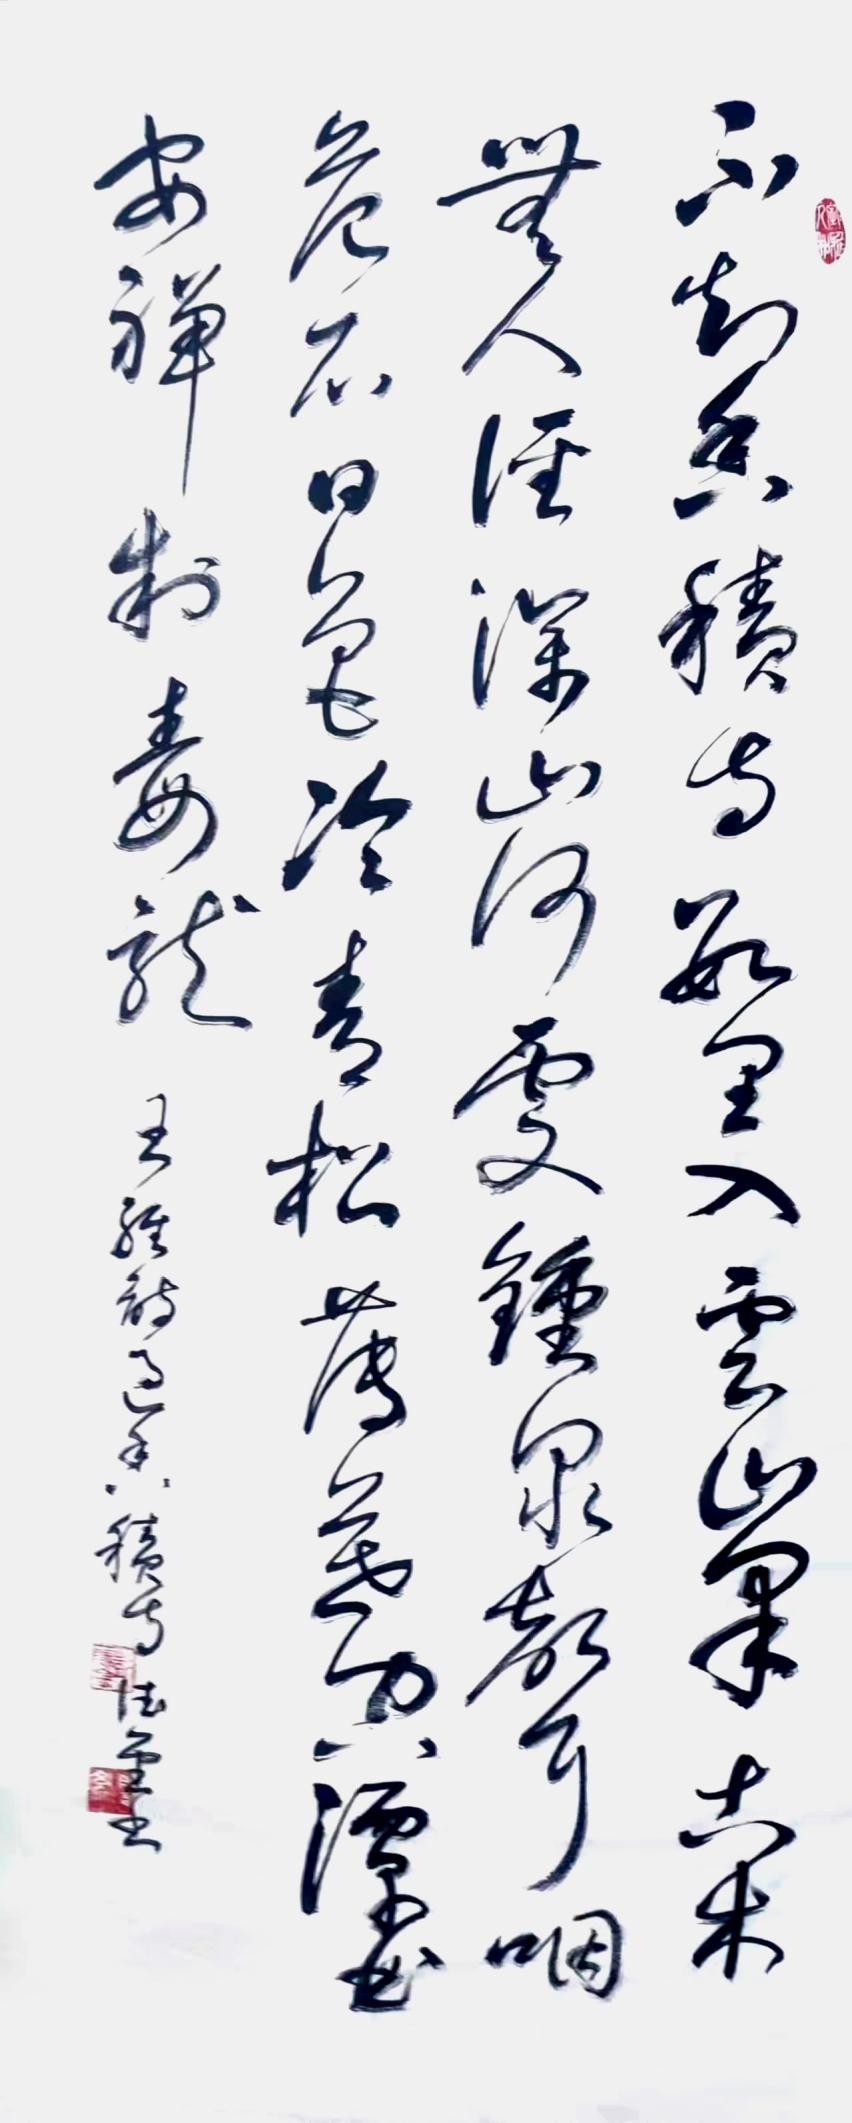 不知香積寺數里入雲峯古木
無人徑深山何處鍾泉聲咽
危石日色冷青松薄暮空潭曲
安禪制毒龍 王維詩過香積寺